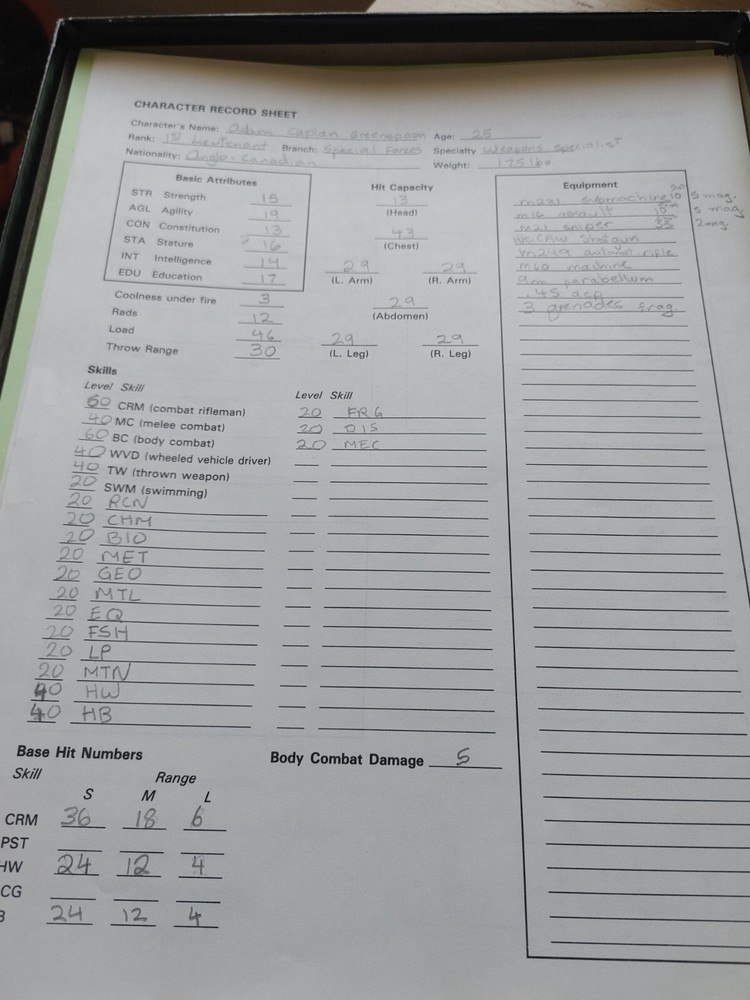 CHARACTER RECORD SHEET
Character's Name: Adam Caplan Greenspoon Age: 25
Rank: 1st Lieutenant Branch: Special Forces Specialty Weapons Specialist
Nationality: Anglo-Canadian Weight: 175 lbs
Basic Attributes
STR Strength 15
AGL Agility 19
CON Constitution 13
STA Stature 16
INT Intelligence 14
EDU Education 17
Coolness under fire 3
Rads 12
Load 46
Throw Range 30
Hit Capacity
13
(Head)
43
(Chest)
29 29
(L. Arm) (R. Arm)
29
(Abdomen)
29 29
(L. Leg) (R. Leg)
Equipment
submachine 5 mag.
m16 assault 5 mag
m21 sniper 2 mag
HK-CAW Shotgun
m249 rifle
m60 machine
9mm parabellum
.45 acp
3 grenades frag.
Skills
Level Skill
60 CRM (combat rifleman)
40 MC (melee combat)
60 BC (body combat)
40 WVD (wheeled vehicle driver)
40 TW (thrown weapon)
20 SWM (swimming)
20 RCN
20 CHM
20 BIO
20 MET
20 GEO
20 MTL
20 EQ
20 FSH
20 LP
20 MTN
40 HW
40 HB
Level Skill
20 FRG
20 DIS
20 MEC
Base Hit Numbers
Skill Range
S M L
CRM 36 18 6
PST
HW 24 12 4
CG
24 12 4
Body Combat Damage 5